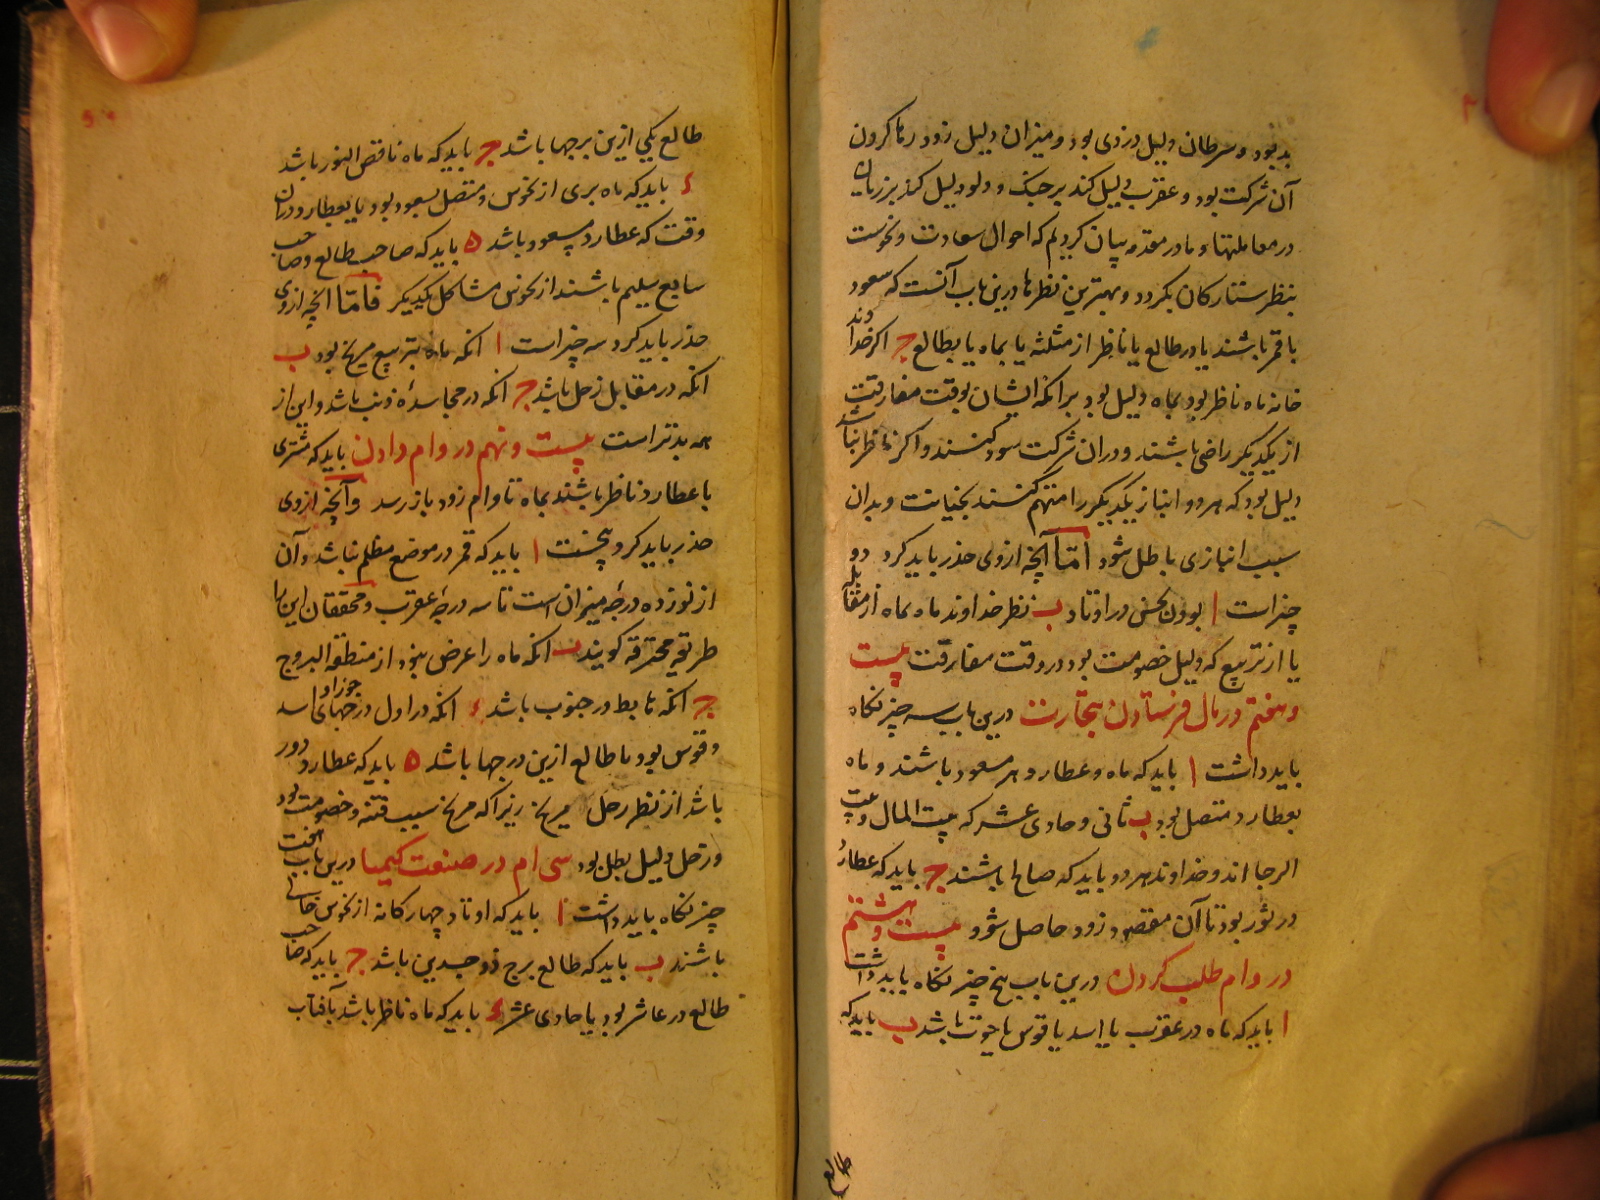 بد بود و سرطان دلیل دزدی بود و میزان دلیل زود رها کردن
آن شرکت بود و عقرب دلیل کند بر جنک و دلو دلیل کند بر زیان
در معاملتها و ما در مقدمه بیان کردیم که احوال سعادت و نحوست
بنظر ستارکان بکردد و بهترین نظرها درین باب آنست که سعود
با قمر باشند یا در طالع یا ناظر از مثلثه یا بماه یا بطالع ج اکر خداوند
خانه ماه ناظر بود بماه دلیل بود بر انکه ایشان بوقت مفارقت
از یکدیکر راضی باشند و در ان شرکت سود کنند و اکر ناظر نباشد
دلیل بود که هر دو انباز یکدیکر را متهم کنند بخیانت و بدان
سبب انبازی باطل شود امّا آنچه ازوی حذر باید کرد دو
چیز است ا بودن نحس در اوتاد ب نظر خداوند ماه بماه از مقابله
یا از تربیع که دلیل خصومت بود در وقت مفارقت بیست
و هفتم در مال فرستادن بتجارت درین باب سه چیز نکاه
باید داشت ا باید که ماه و عطارد هر مسعود باشند و ماه
بعطارد متصل بود ب ثانی و حادی عشر که بیت المال و بیت
الرجا اند و خداوند هر دو باید که صالح باشند ج باید که عطارد
در ثور بود تا آن مقصود زود حاصل شود بیست و هشتم
در وام طلب کردن درین باب پنج چیز نکاه باید داشت
ا باید که ماه در عقرب یا اسد یا قوس یا حوت باشد ب باید که
طالع
طالع یکی ازین برجها باشد ج باید که ماه ناقص النور باشد
د باید که ماه بری از نحوس و متصل بسعود بود یا بعطارد در ان
وقت که عطارد مسعود باشد ه باید که صاحب طالع و صاحب
سابع سلیم باشند از نحوس مشاکل یکدیکر فامّا انچه ازوی
حذر باید کرد سه چیز است ا انکه ماه بتربیع مریخ بود ب
انکه در مقابل زحل باشد ج انکه در مجاسده ذنب باشد و این از
همه بدتر است بیست و نهم در وام دادن باید که مشتری
با عطارد ناظر باشند بماه تا وام زود باز رسد و آنچه ازوی
حذر باید کرد پنجست ا باید که قمر در موضع مظلم نباشد و آن
از نوزده درجه میزان است تا سه درجه عقرب و محققان این را
طریقه محترقه کویند ب انکه ماه را عرض نبود از منطقة البروج
ج انکه هابط در جنوب باشد د انکه در اول درجهای اسد جوزا و
و قوس بود یا طالع ازین درجها باشد ه باید که عطارد دور
باشد از نظر زحل مریخ زیرا که مریخ سبب فتنه و خصومت بود
و زحل دلیل بطل بود سی ام در صنعت کیمیا درین باب هفت
چیز نکاه باید داشت ا باید که اوتاد چهارکانه از نحوس خالی
باشند ب باید که طالع برج ذوجسدین باشد ج باید که صاحب
طالع در عاشر بود یا حادی عشر د باید که ماه ناظر باشد بآفتاب